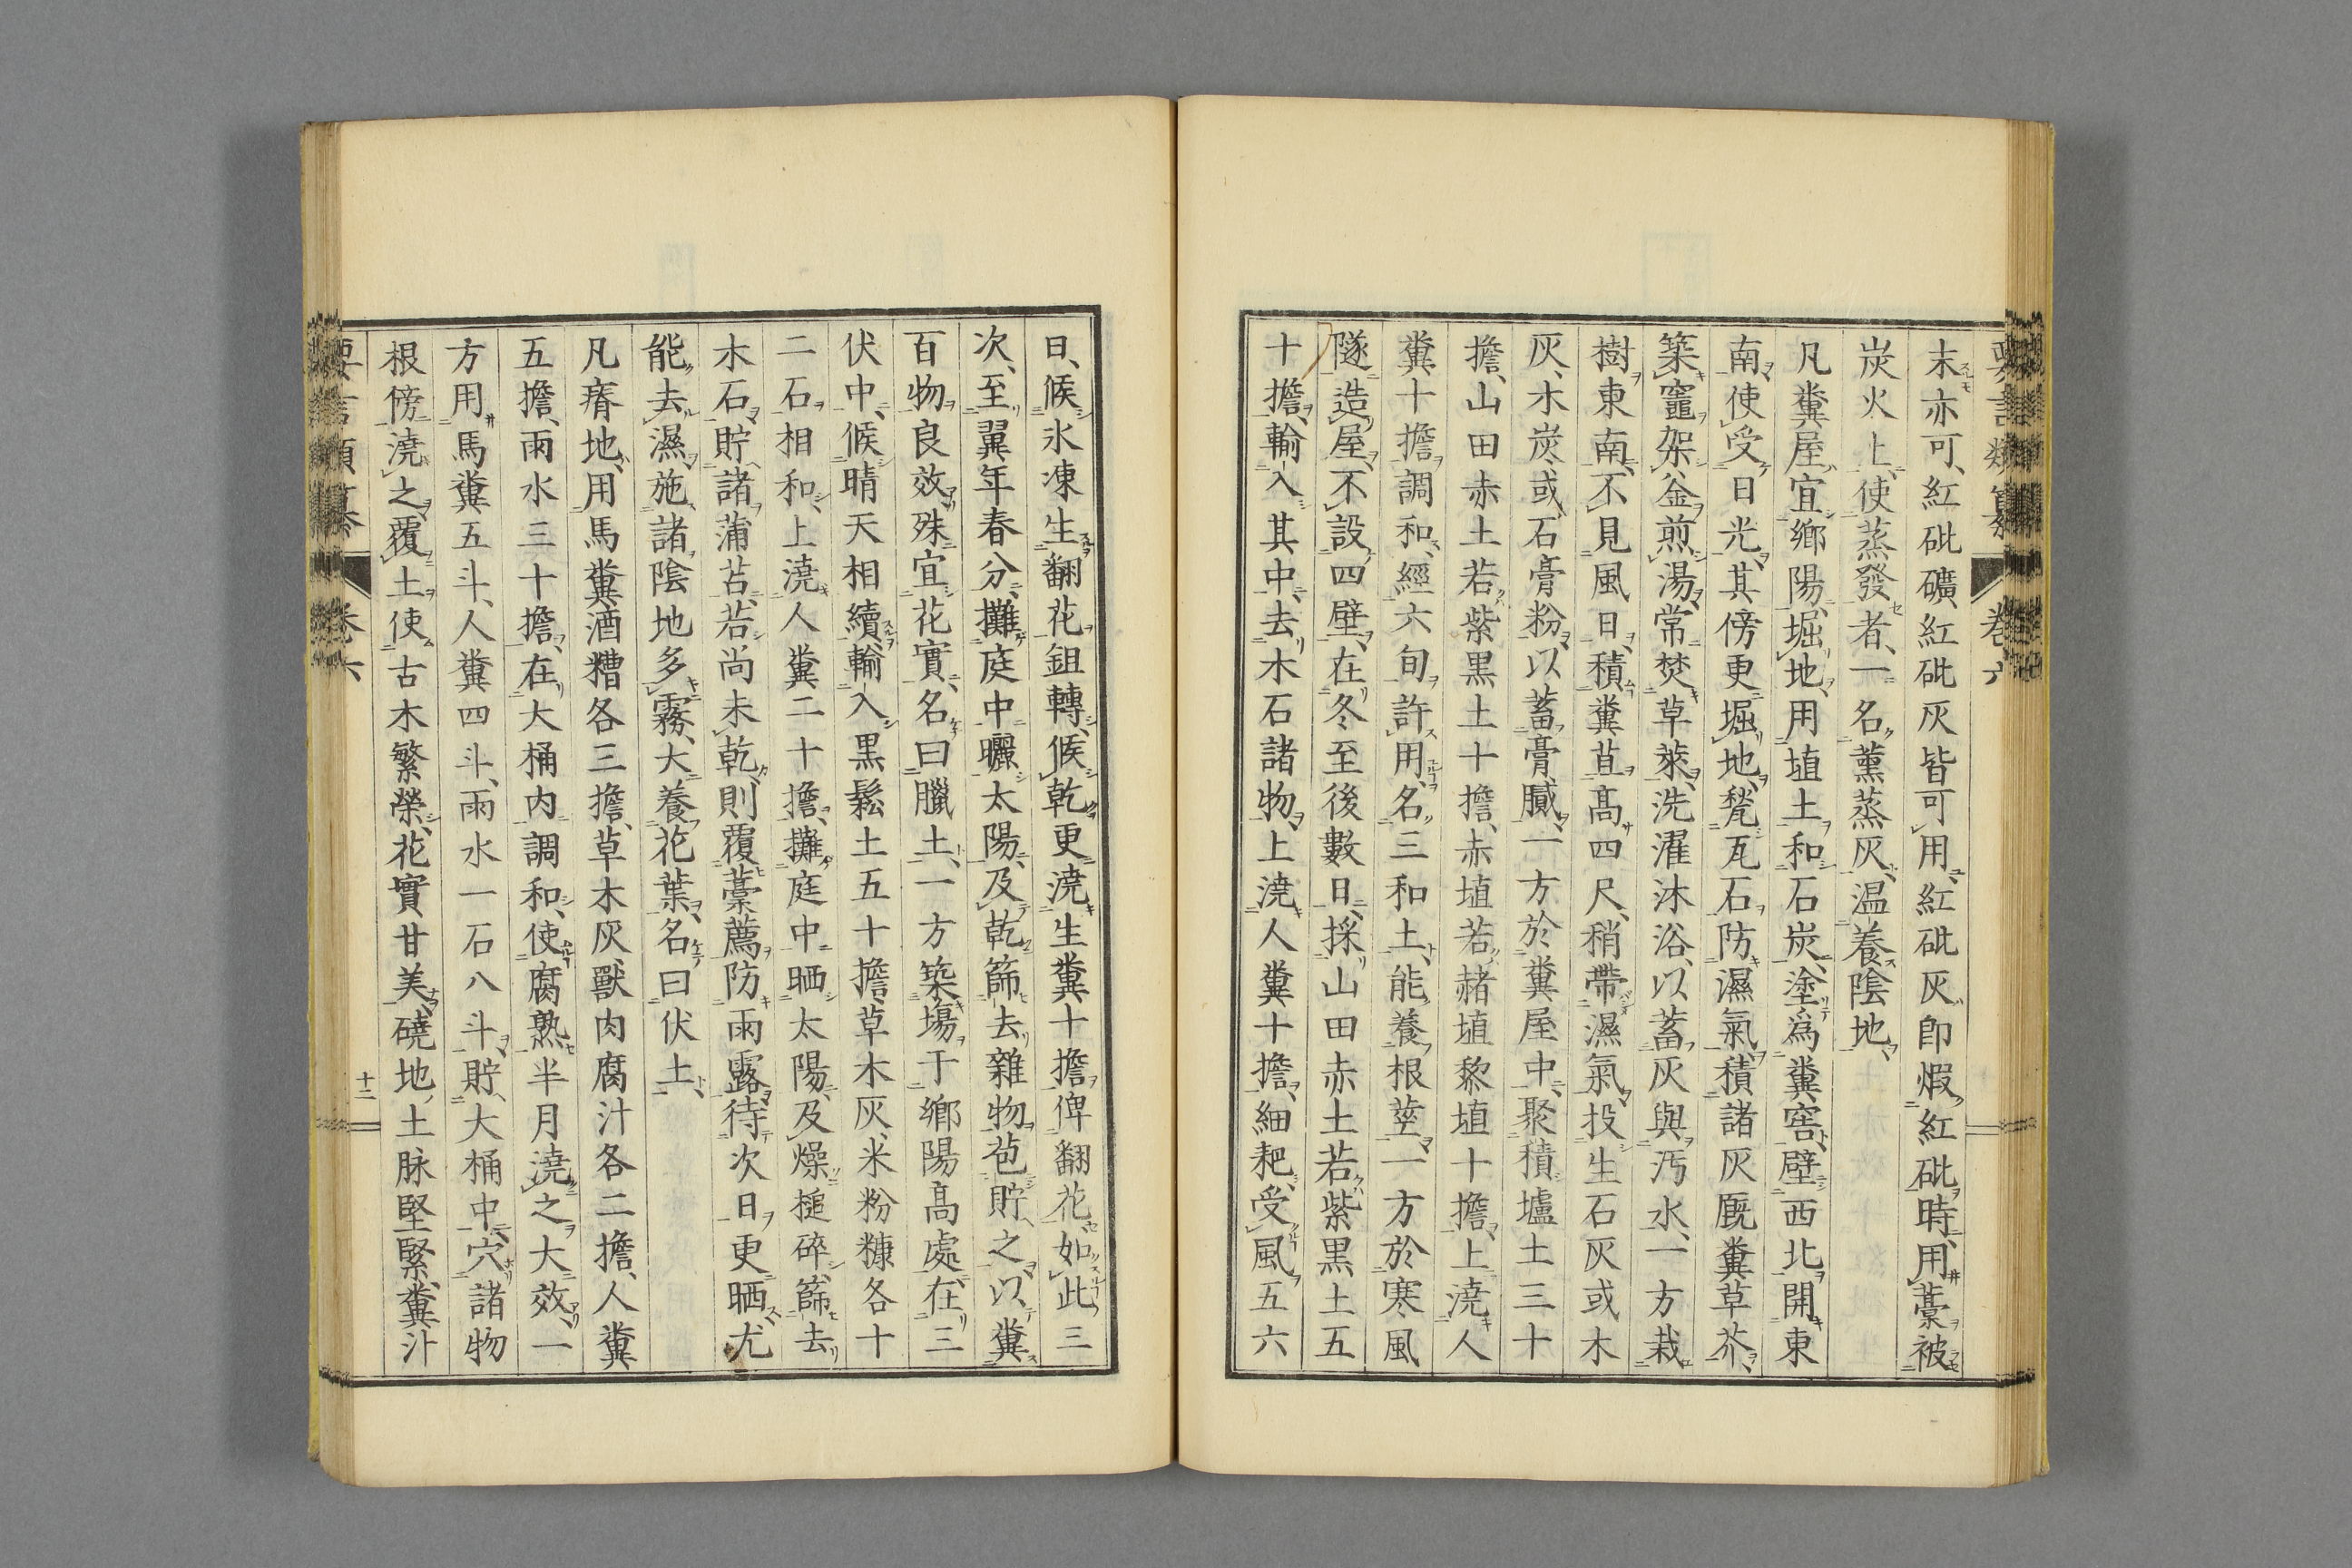 末亦可、紅砒礦紅砒灰皆可用、紅砒灰卽煆紅砒時、用藁被
炭火上、使蒸發者、一名薰蒸灰、温養陰地、
凡糞屋、宜鄉陽、堀地、用埴土和石炭、塗爲糞窖、壁西北開東
南、使受日光、其傍更堀地、甃瓦石防濕氣、積諸灰厩糞草芥、
築竈架釜煎湯、常焚草萊、洗濯沐浴、以蓄灰與汚水、一方栽
樹東南、不見風日、積糞苴高四尺、稍帶濕氣、投生石灰或木
灰、木炭、或石膏粉、以蓄膏膩、一方於糞屋中、聚積壚土三十
擔、山田赤土若紫黑土十擔、赤埴若赭埴黎埴十擔、上澆人
糞十擔調和、經六旬許用、名三和土、能養根莖、一方於寒風
隧造屋、不設四壁、在冬至後數日、採山田赤土若紫黑土五
十擔、輸入其中、去木石諸物、上澆人糞十擔、細耙、受風五六
日、候氷凍生翻花鉏轉、候乾更澆生糞十擔俾翻花、如此三
次、至翼年春分、攤庭中曬太陽、及乾篩去雜物苞貯之、以糞
百物良效、殊宜花實、名曰臘土、一方築塲于鄉陽高處、在三
伏中、候晴天相續、輸入黑鬆土五十擔、草木灰、米粉糠各十
二石相和、上澆人糞二十擔、攤庭中晒太陽、及燥搥碎、篩去
木石、貯諸蒲苫、若尚未乾、則覆藁薦防雨露、待次日更晒、尤
能去濕、施諸陰地多霧、大養花葉、名曰伏土、
凡瘠地、用馬糞酒糟各三擔、草木灰、獸肉腐汁各二擔、人糞
五擔、雨水三十擔、在大桶内調和、使腐熟半月澆之大效、一
方用馬糞五斗、人糞四斗、雨水一石八斗、貯大桶中、穴諸物
根傍澆之覆土、使古木繁榮、花實甘美、磽地、土脉堅緊、糞汁
卷六
十二